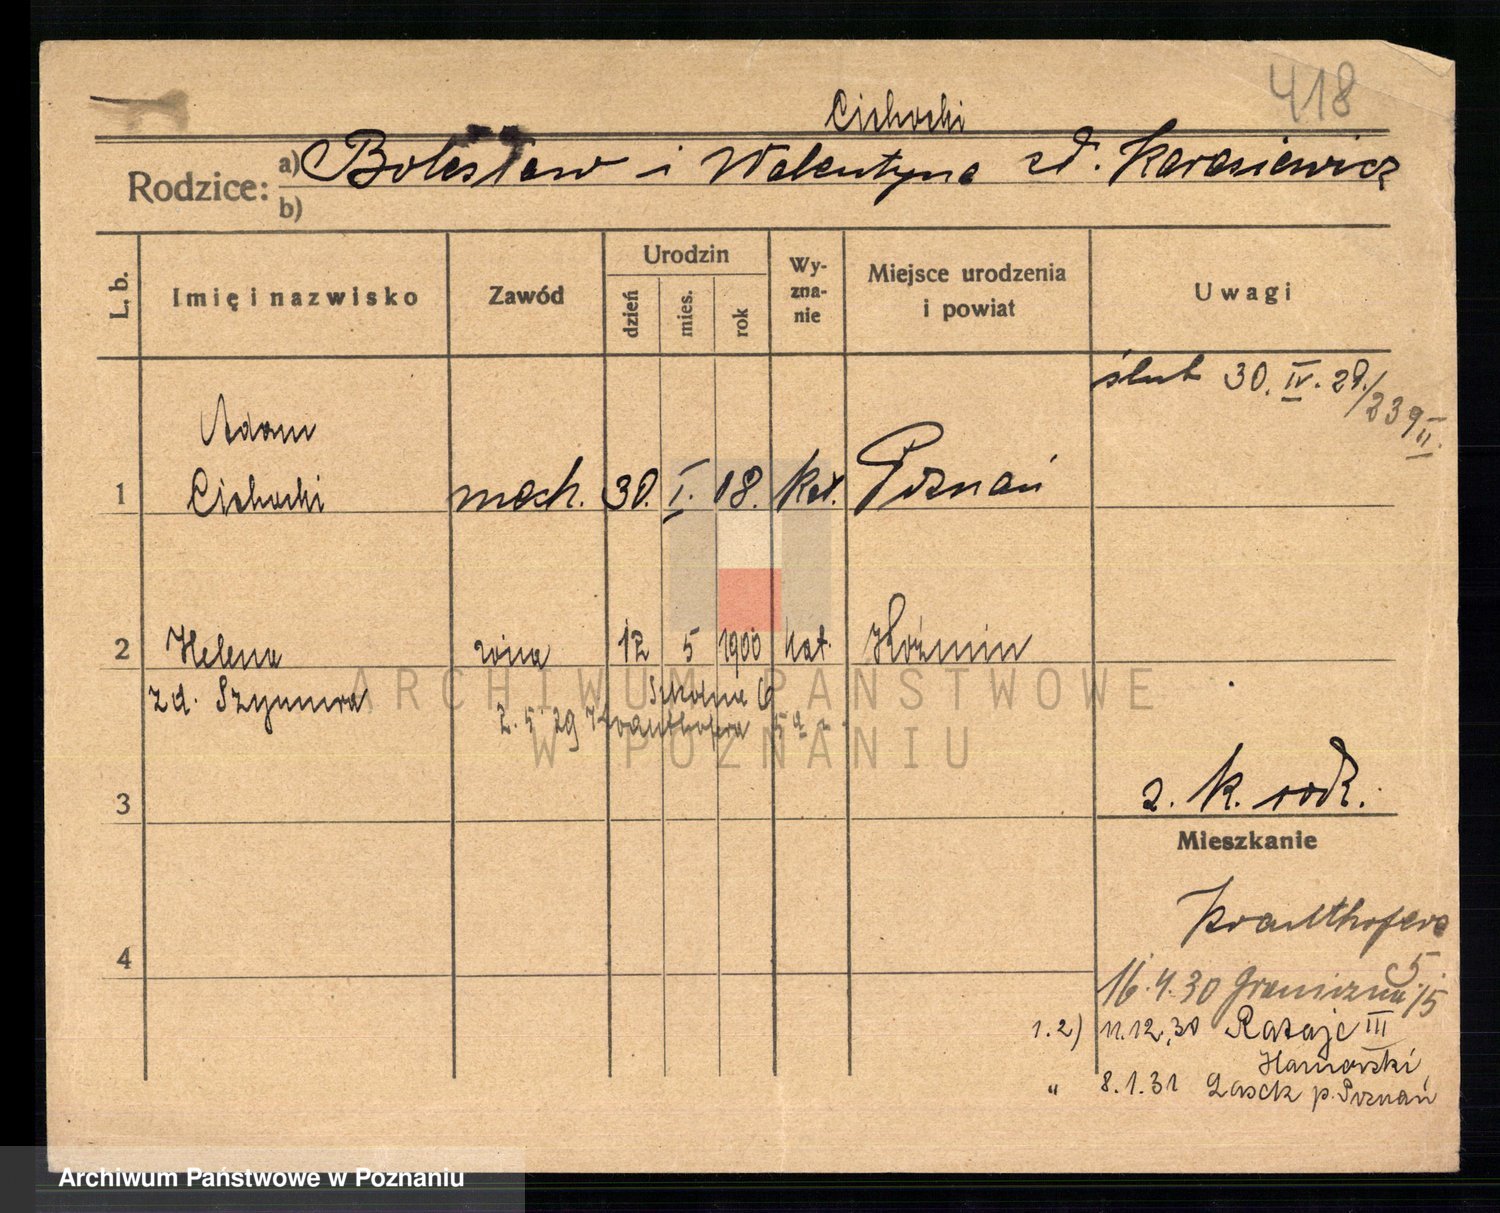 418
Cichocki
Rodzice: a) Bolesław i Walentyna zd. Karasiewicz
b)
L. b.
Imię i nazwisko
Zawód
Urodzin
dzień
mies.
rok
Wy-
zna-
nie
Miejsce urodzenia
i powiat
Uwagi
ślub 30. IV. 29./239 II.
Adam
1 Cichocki mech. 30. I. 08. kat. Poznań
2 Helena żona 12 5 1900 kat. Koźmin
zd. Szymura Szkolna 6
2. 5. 29 Krauthofera 5
ARCHIWUM PAŃSTWOWE
W POZNANIU
3 z. k. rodz.
Mieszkanie
Krauthofera
4 5.
16.4.30 Graniczna 15
1.2) 11.12.30 Rataje III
" 8.1.31 Lasek p. Poznań
Archiwum Państwowe w Poznaniu